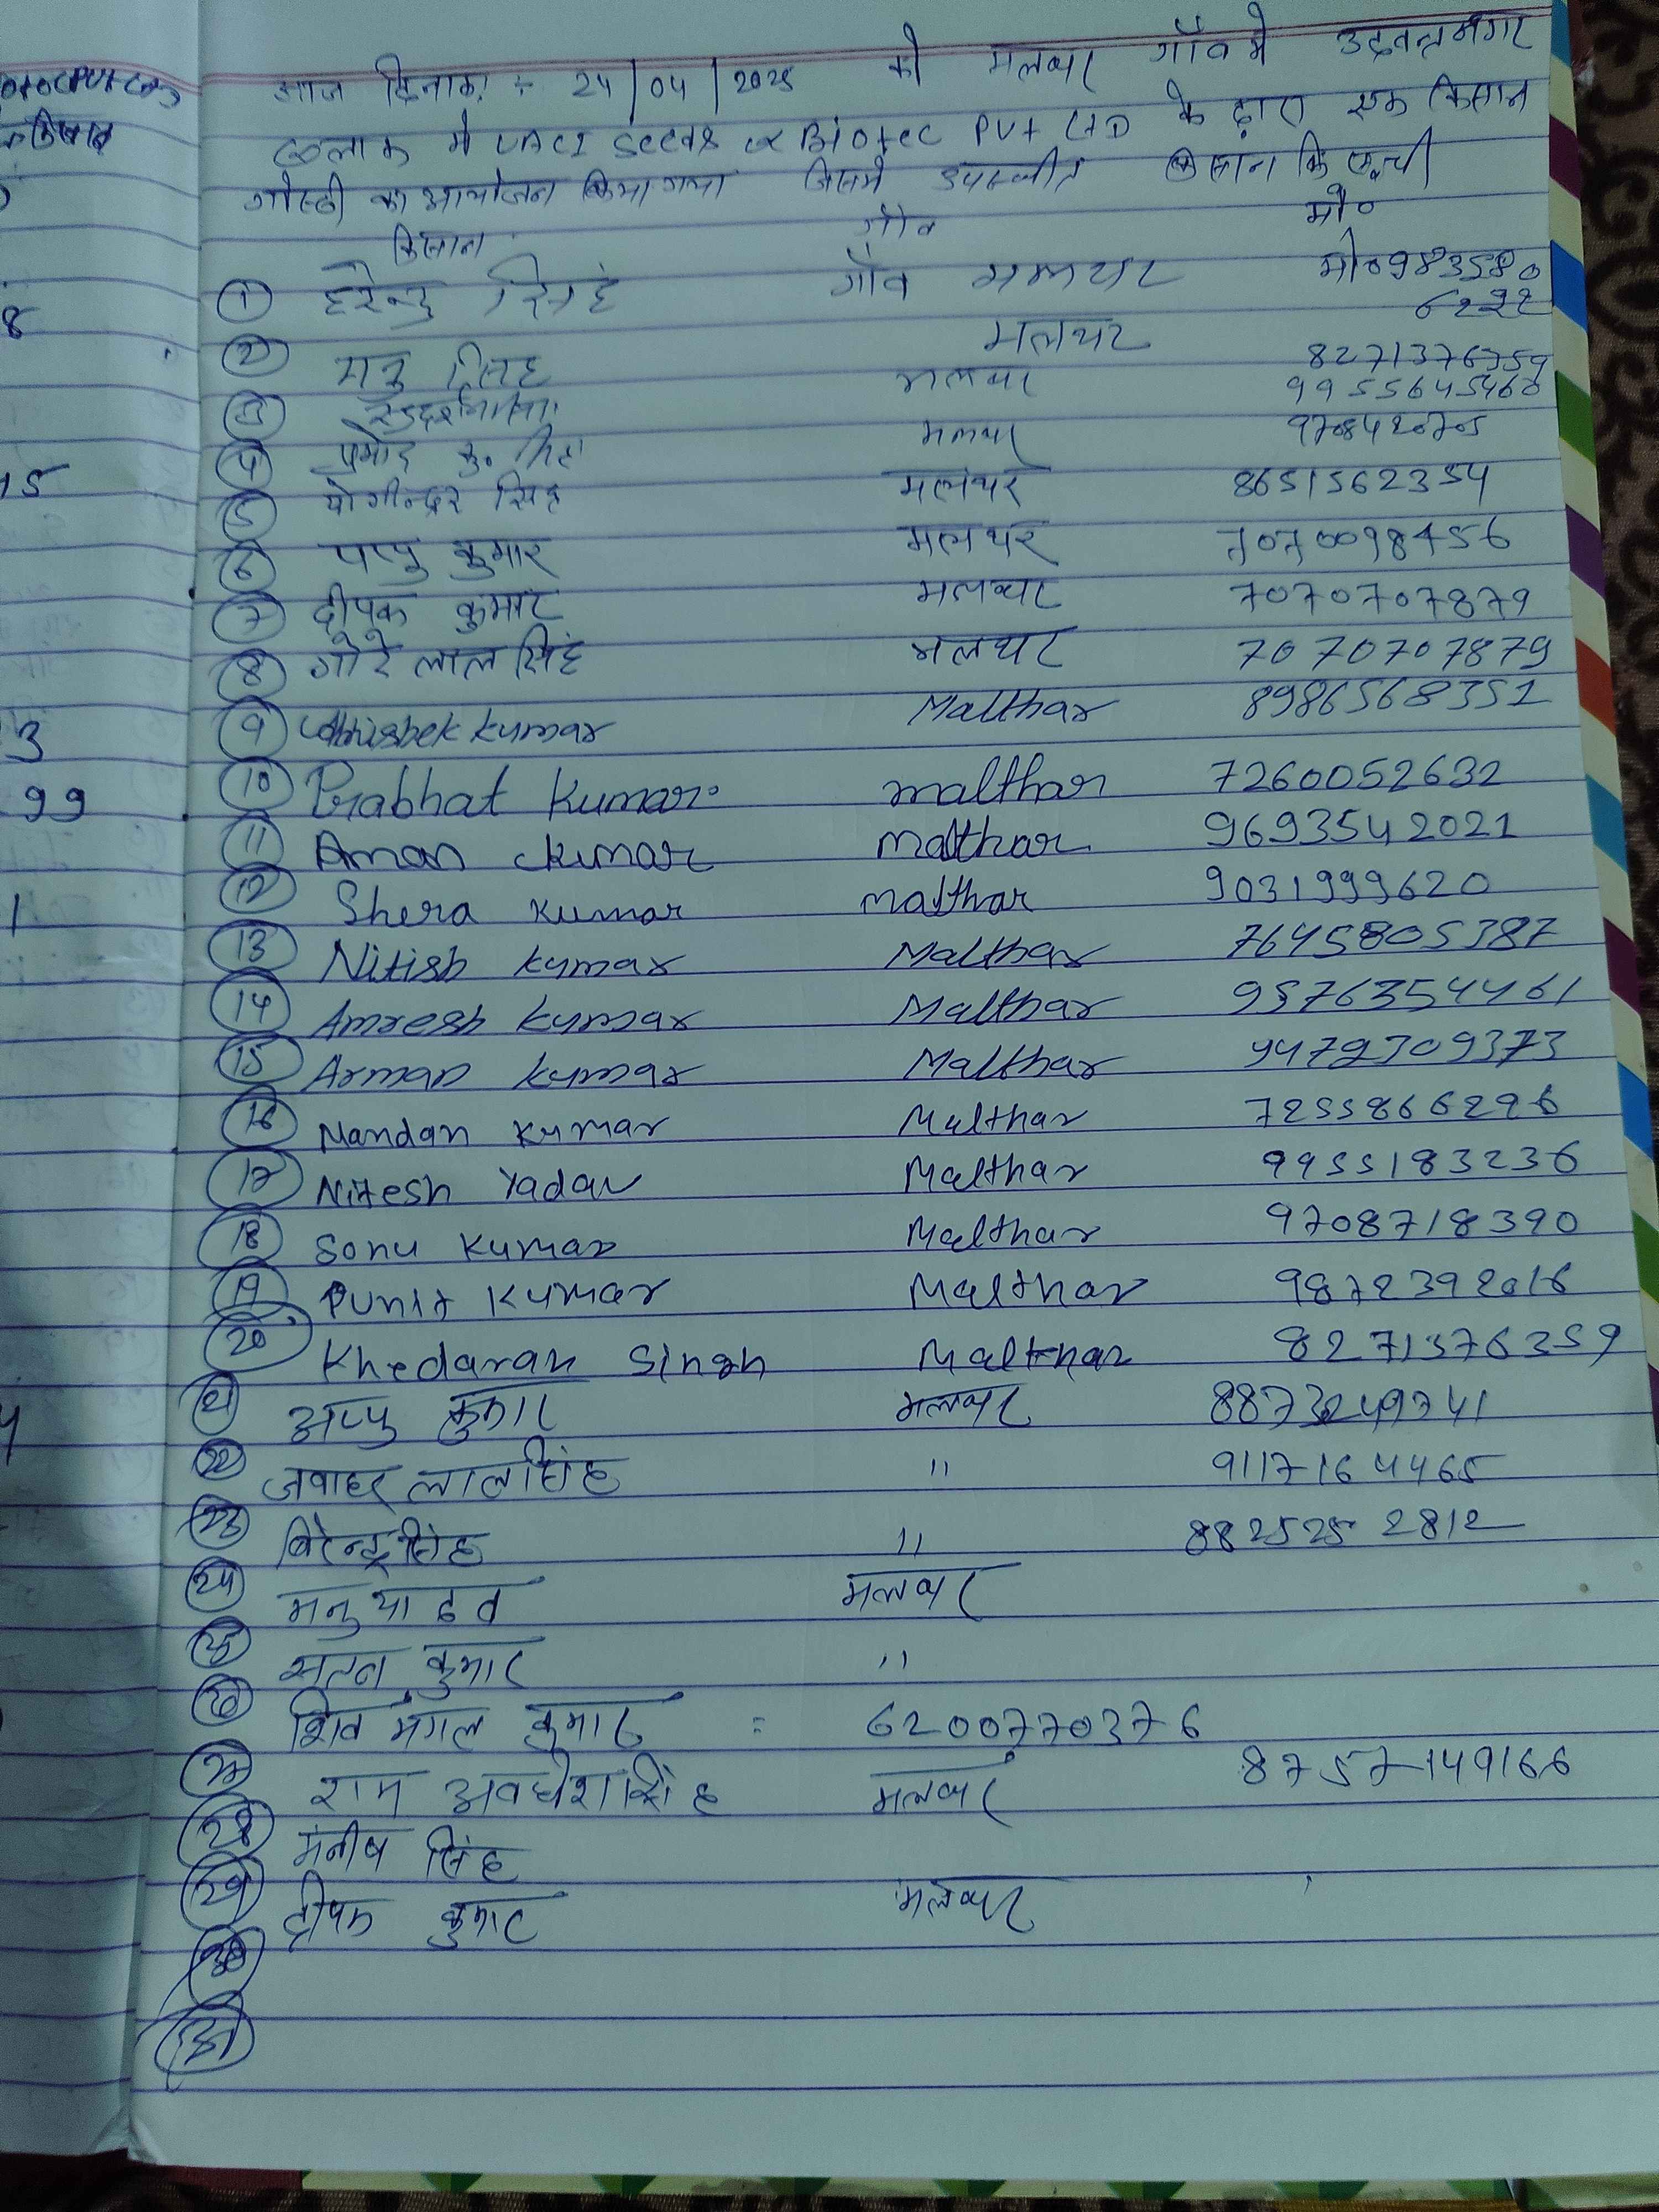 आज दिनाक :- 24/04/2025 को मलथर गाँव मे उदवन्तनगर
ब्लाक मे Seeds & Biotec PVT LTD के द्वारा एक किसान
गोस्ठी का आयोजन किया गया जिसमे उपस्थीत किसान कि सूची
किसान गाँव मो०
1 हरेन्द्र सिंह गाँव मलथर मो० 983580
6292
2 मनु सिंह मलथर 8271376759
3 मलथर 9955645460
4 प्रमोद कु० सिंह मलथर 9708420705
5 योगीन्दर सिंह मलथर 8651562354
6 पप्पु कुमार मलथर 7070098456
7 दीपक कुमार मलथर 7070707879
8 गोरे लाल सिंह मलथर 7070707879
9 Abhishek Kumar Malthar 8986568351
10 Prabhat Kumar malthar 7260052632
11 Aman Kumar malthar 9693542021
12 Shera Kumar malthar 9031999620
13 Nitish Kumar Malthar 7645805387
14 Amresh Kumar Malthar 9576354461
15 Arman Kumar Malthar 9479309373
16 Nandan Kumar Malthar 7255866296
17 Nitesh Yadav Malthar 9955183236
18 Sonu Kumar Malthar 9708718390
19 Punit Kumar Malthar 9872392016
20 Khedaran Singh Malthar 8271376359
21 अप्पु कुमार मलथर
22 जवाहर लाल सिंह " 9117164465
23 बिरेन्द्र सिंह " 8825252812
24 मनु यादव मलथर
25 कुमार "
26 शिव मंगल कुमार = 6200770376
27 राम अवधेश सिंह मलथर 8757149166
28 मनीष सिंह
29 दीपक कुमार मलथर
30
31